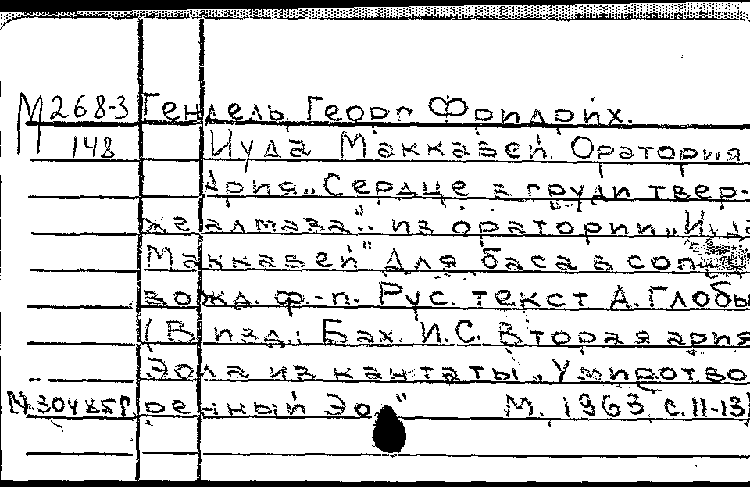 М 268-3 Гендель, Георг Фридрих.
148 Иуда Маккавей. Оратория
Ария „Сердце в груди твер-
же алмаза": из оратории „Иуда
Маккавей" Для баса в сопро-
вожд. ф.-п. Рус. текст А. Глобы
(В изд.: Бах. И.С. Вторая ария
Эола из кантаты „Умиротво
ренный Эол" М. 1963 с. 11-13)